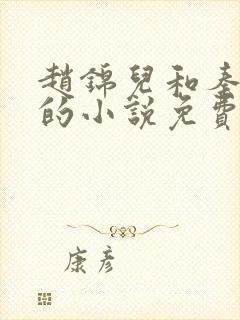 趙錦兒和秦
的小說免費
康彥